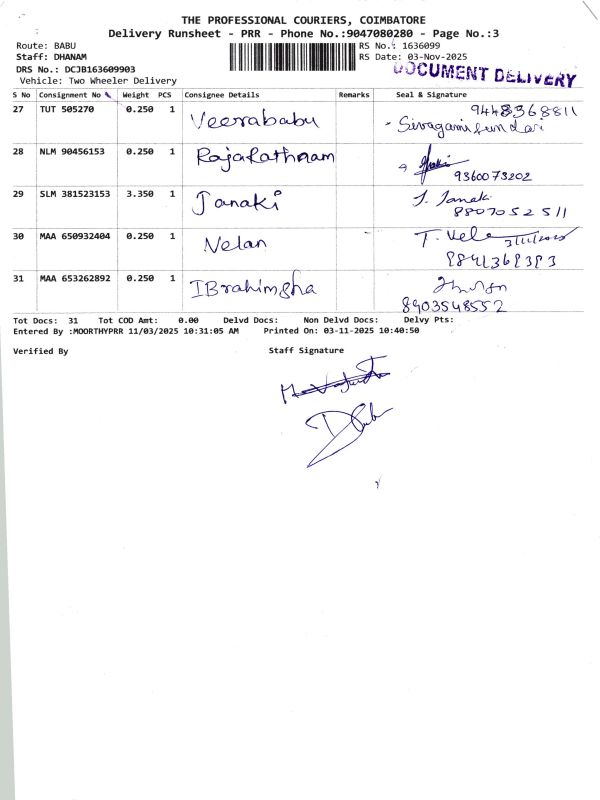 THE PROFESSIONAL COURIERS, COIMBATORE
Delivery Runsheet - PRR - Phone No.:9047080280 - Page No.:3
Route: BABU RS No.: 1636099
Staff: DHANAM RS Date: 03-Nov-2025
DRS No.: DCJB163609903 DOCUMENT DELIVERY
Vehicle: Two Wheeler Delivery
S No Consignment No Weight PCS Consignee Details Remarks Seal & Signature
27 TUT 505270 0.250 1 Veerababu 9448368811
Sivagami Sundari
28 NLM 90456153 0.250 1 RajaRathnam
9360073202
29 SLM 381523153 3.350 1 Janaki J. Janaki
8807052511
30 MAA 650932404 0.250 1 Nelan T. Vele 3/11/2025
31 MAA 653262892 0.250 1 IBrahimsha
8903548552
Tot Docs: 31 Tot COD Amt: 0.00 Delvd Docs: Non Delvd Docs: Delvy Pts:
Entered By :MOORTHYPRR 11/03/2025 10:31:05 AM Printed On: 03-11-2025 10:40:50
Verified By Staff Signature